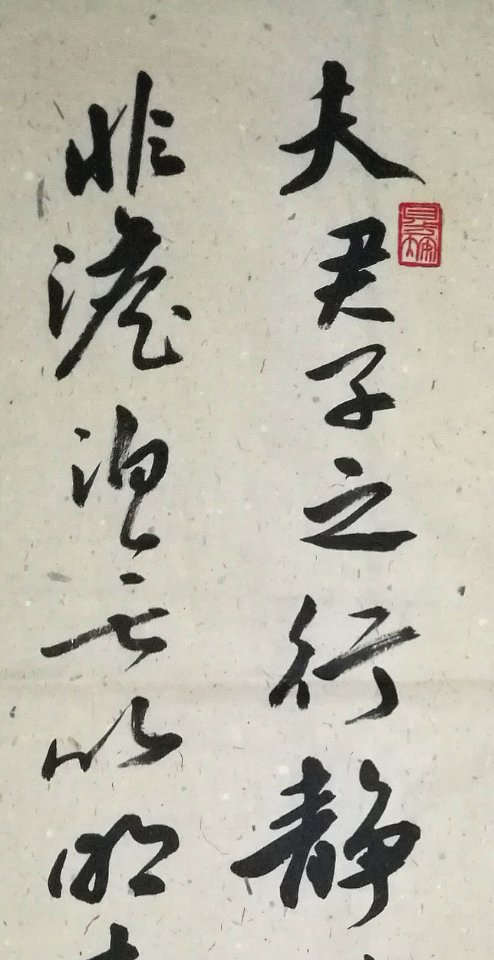 夫君子之行静
非澹泊无以明